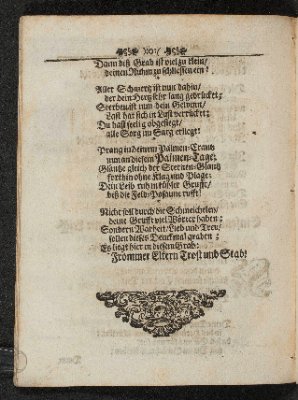 XXVI
Dann diß Grab ist viel zu klein/
deinen Ruhm zu schliessen ein!
Aller Schmertz ist nun dahin/
der dein Hertz sehr lang gedrücket;
Sterben ist nun dein Gewinn/
Last hat sich in Lust verrücket;
Du hast seelig obgesieget/
alle Sorg im Sarg erliegt!
Prang in deinem Palmen-Crantz
nun an diesem Palmen-Tage;
Gläntze gleich der Sternen-Glantz
forthin ohne Klag und Plage;
Dein Leib ruh in kühler Grufft/
biß die Feld-Posaune rufft!
Nicht soll durch die Schmeicheley/
deine Grufft viel Wörter haben;
Sondern Warheit/Lieb und Treu/
sollen dieses Denckmal graben;
Es ligt hier in diesem Grab:
Frommer Eltern Trost und Stab!